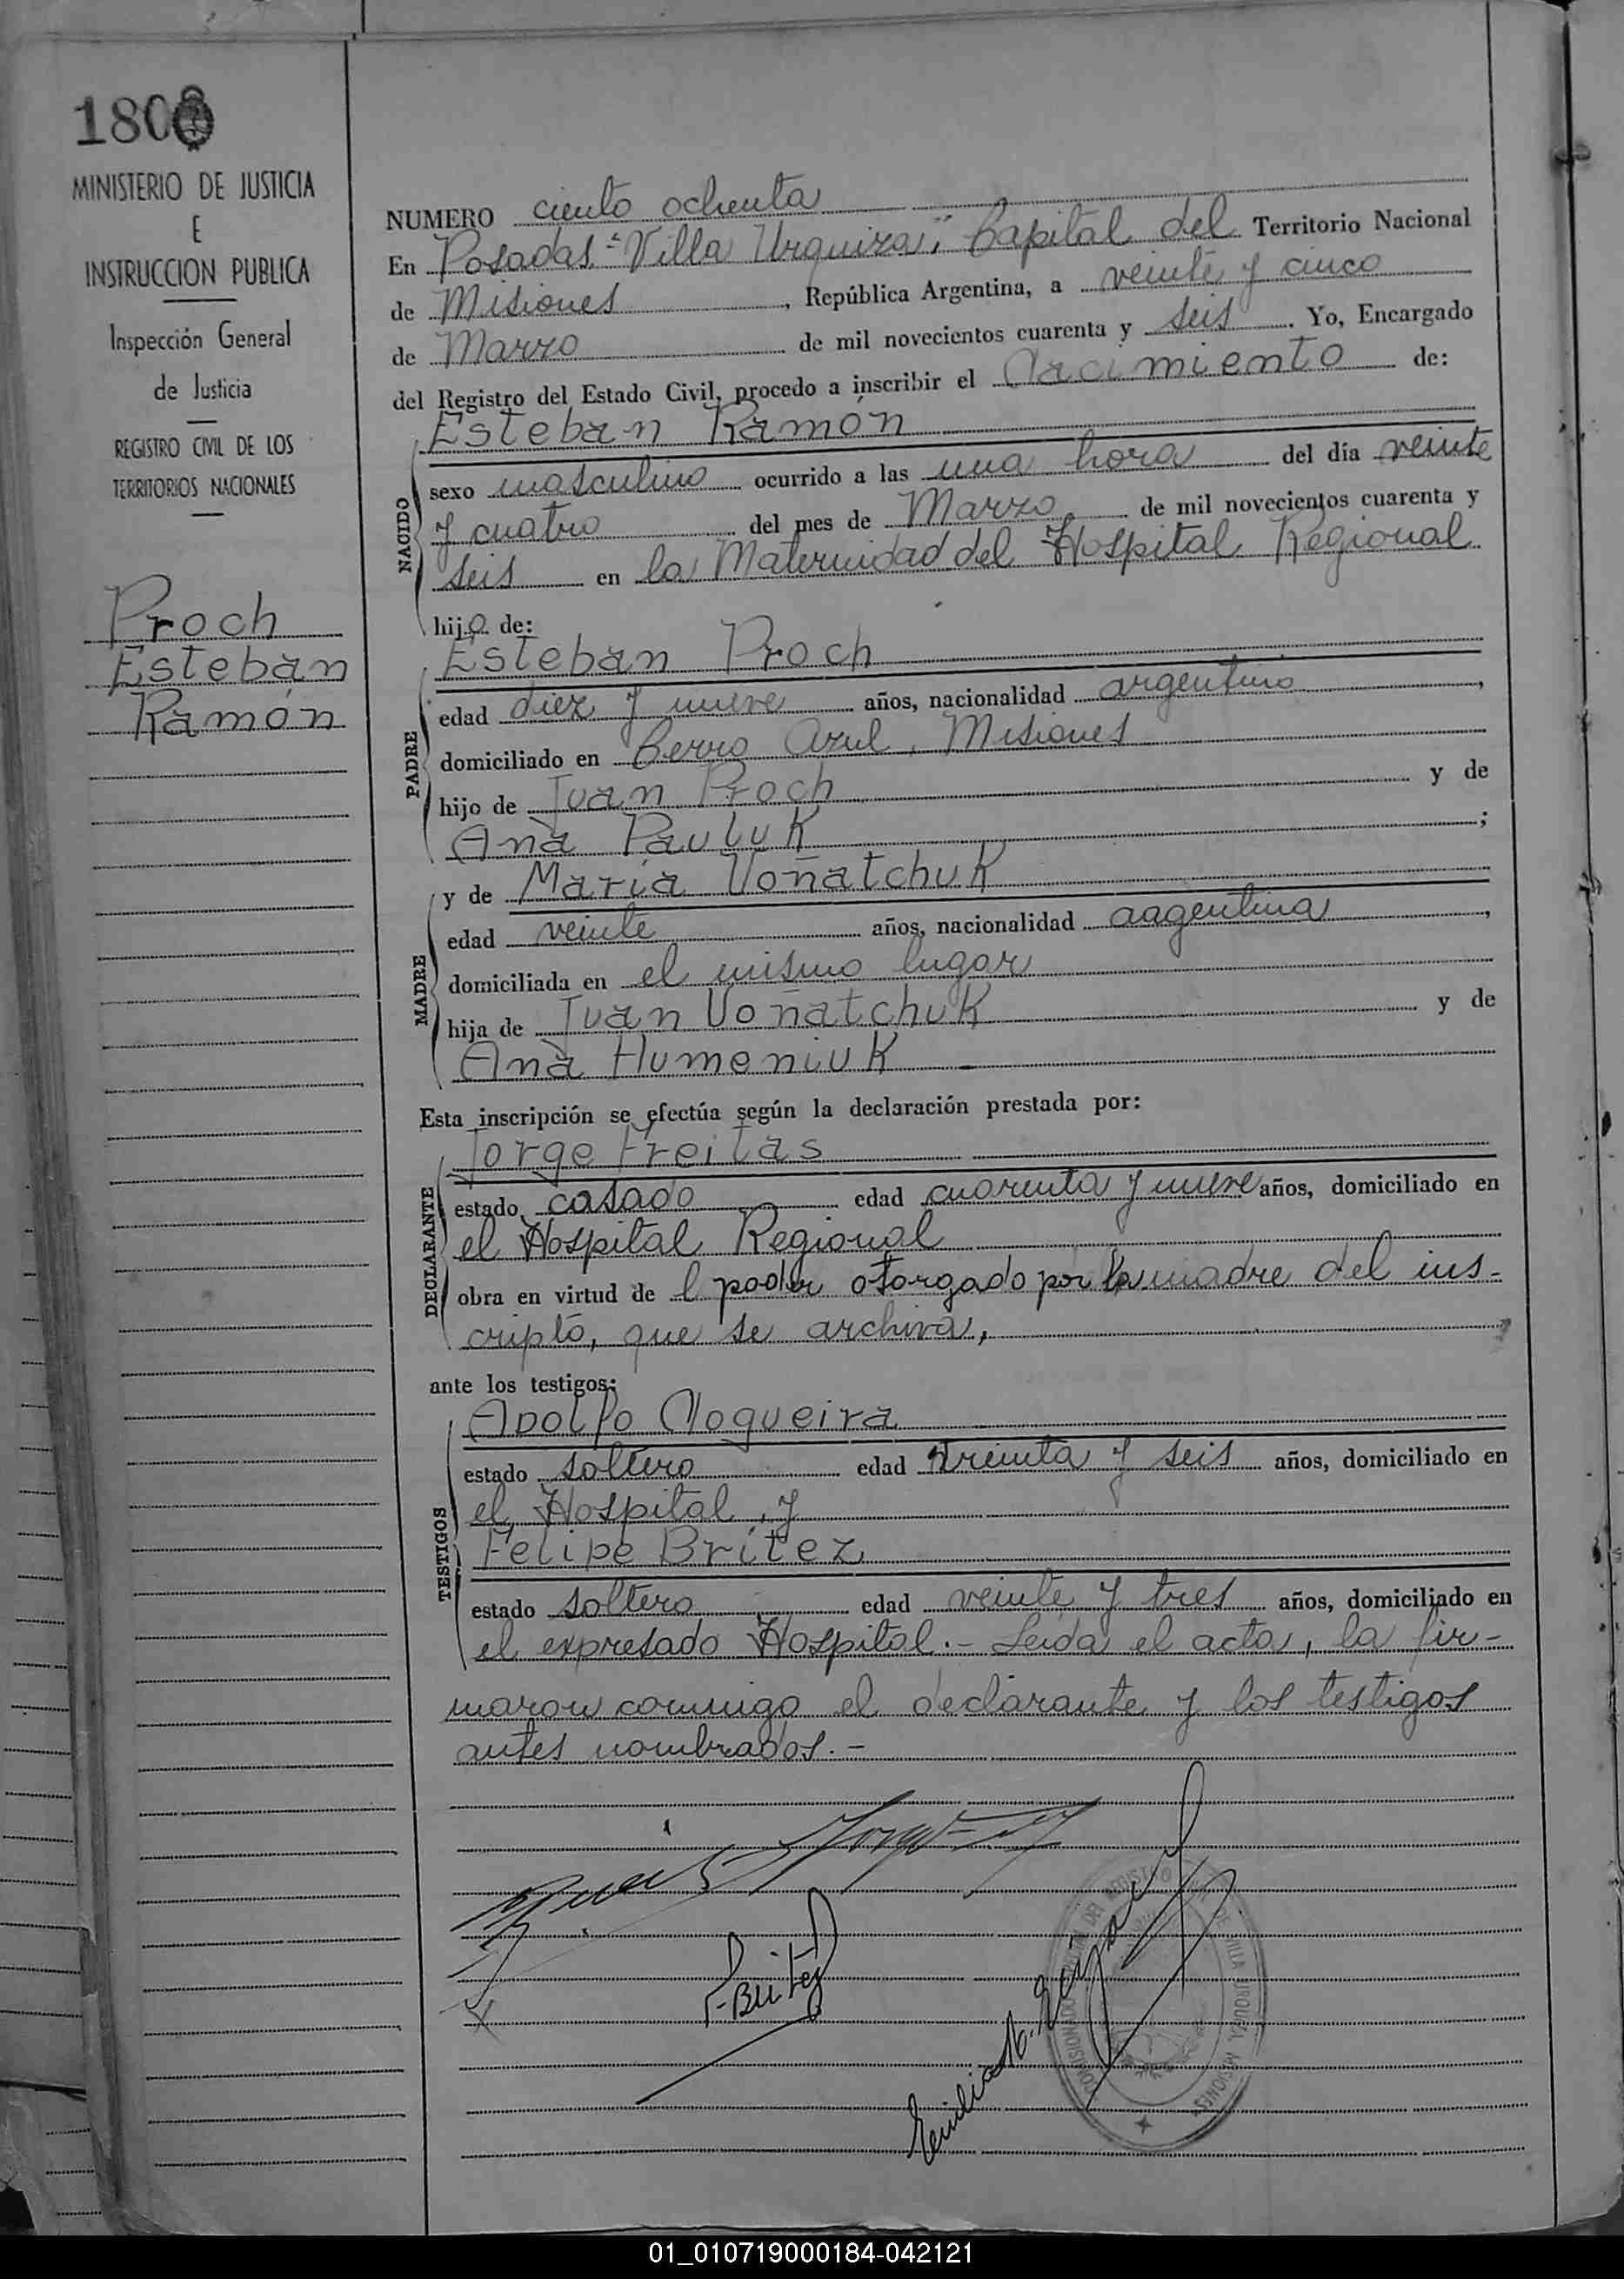 180
MINISTERIO DE JUSTICIA
E
INSTRUCCION PUBLICA
Inspección General
de Justicia
REGISTRO CIVIL DE LOS
TERRITORIOS NACIONALES
Proch
Esteban
Ramón
NUMERO ciento ochenta
En Posadas "Villa Urquiza", Capital del Territorio Nacional
de Misiones, República Argentina, a veinte y cinco
de Marzo de mil novecientos cuarenta y seis. Yo, Encargado
del Registro del Estado Civil, procedo a inscribir el Nacimiento de:
NACIDO
Esteban Ramón
sexo masculino ocurrido a las una hora del día veinte
y cuatro del mes de Marzo de mil novecientos cuarenta y
seis en la Maternidad del Hospital Regional
hijo de:
PADRE
Esteban Proch
edad diez y nueve años, nacionalidad argentino,
domiciliado en Cerro Azul, Misiones
hijo de Juan Proch y de
Ana Pauluk;
MADRE
y de María Voñatchuk
edad veinte años, nacionalidad aagentina,
domiciliada en el mismo lugar
hija de Juan Voñatchuk y de
Ana Humeniuk
Esta inscripción se efectúa según la declaración prestada por:
DECLARANTE
Jorge Freitas
estado casado edad cuarenta y nueve años, domiciliado en
el Hospital Regional
obra en virtud de l poder otorgado por la madre del ins-
cripto, que se archiva,
ante los testigos:
TESTIGOS
Adolfo Nogueira
estado soltero edad treinta y seis años, domiciliado en
el Hospital, y
Felipe Britez
estado soltero edad veinte y tres años, domiciliado en
el expresado Hospital.- Leida el acta, la fir-
maron conmigo el declarante y los testigos
antes nombrados.-
F. Britez
VILLA URQUIZA MISIONES
01_010719000184-042121